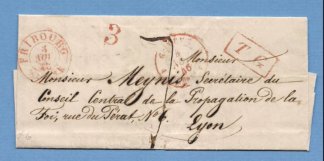 FRIBOURG
3
Monsieur
T.
Monsieur Meynis Secrétaire du
Conseil Central de la Propagation de la
Foi, rue du Pérat, No 6.
Lyon